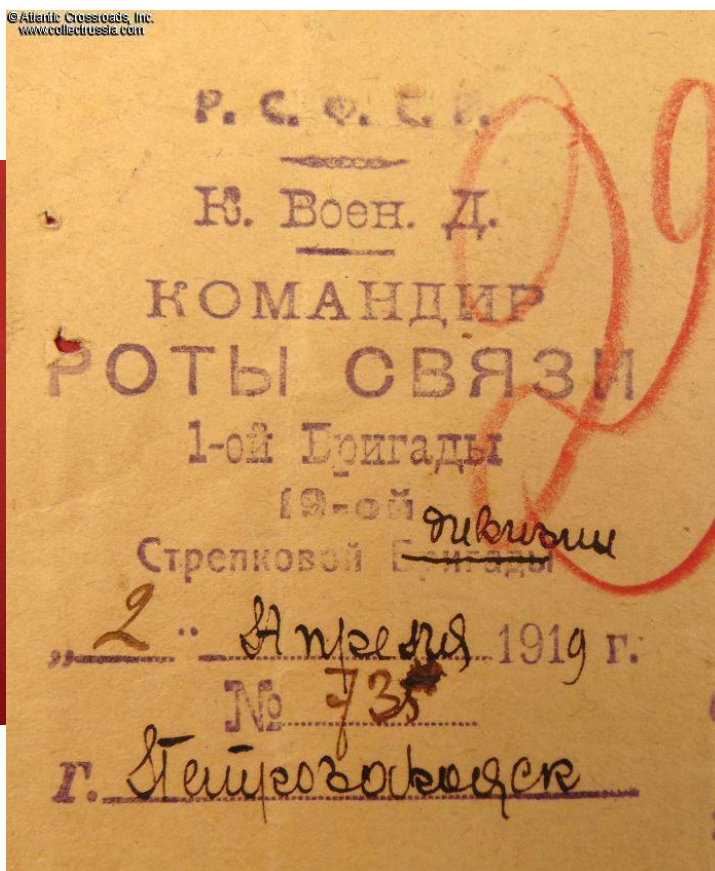 © Atlantic Crossroads, Inc.
www.collectrussia.com
Р. С. Ф. С. Р.
К. Воен. Д.
КОМАНДИР
РОТЫ СВЯЗИ
1-ой Бригады
19-ой
дивизии
Стрелковой Бригады
„2" Апреля 1919 г.
№ 735
г. Петрозаводск
29